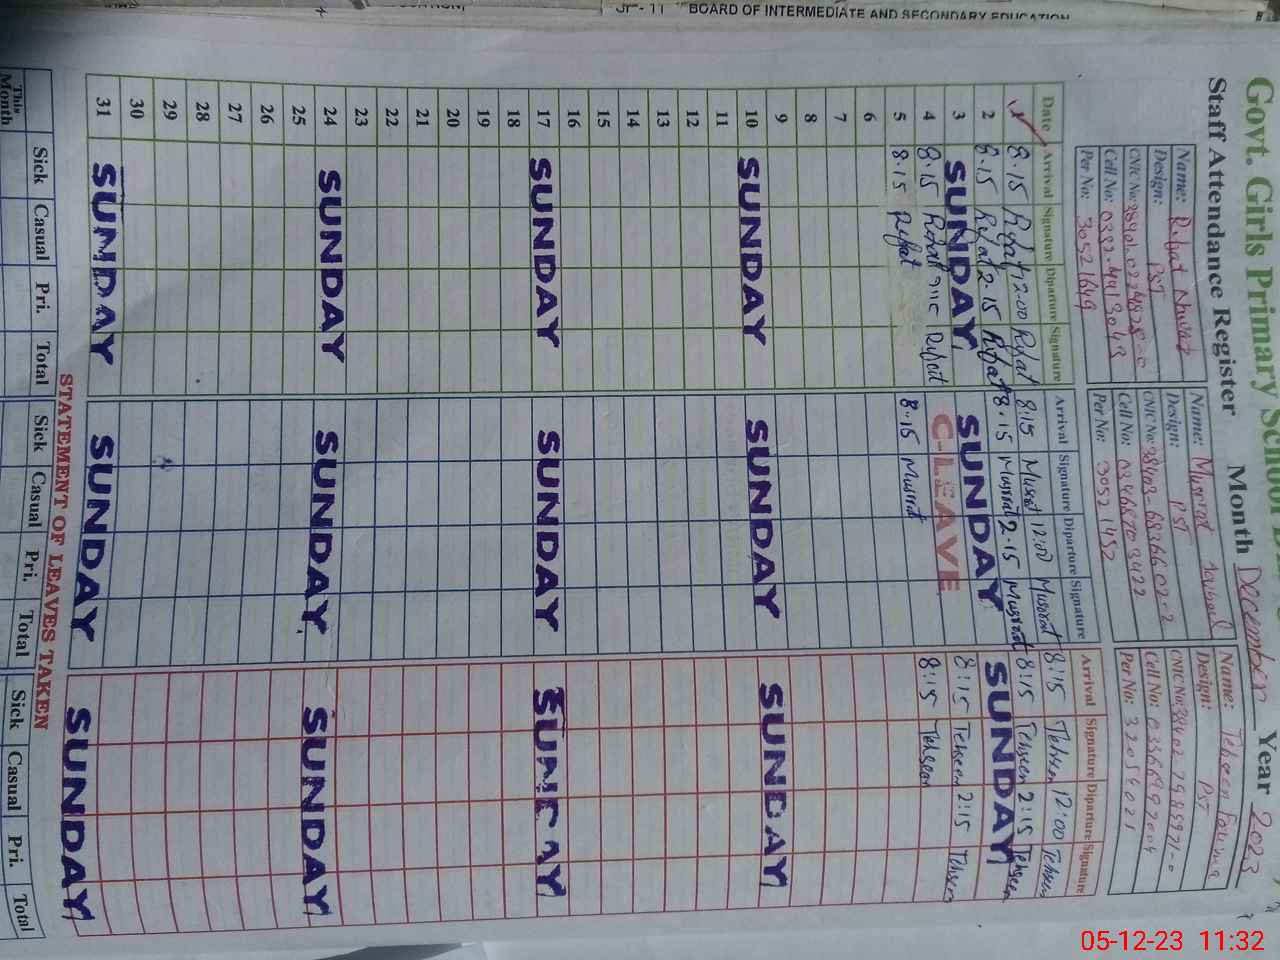 JP - 11 "BOARD OF INTERMEDIATE AND SECONDARY EDUCATION
Govt. Girls Primary School
Staff Attendance Register Month December Year 2023
Name: Rifat Nawaz Name: Musrat Name: Tehseen
Design: PST Design: PST Design: PST
CNIC No: CNIC No: CNIC No:
Cell No: Cell No: Cell No:
Per No: 30521649 Per No: 30521452 Per No: 32054021
Date Arrival Signature Diparture Signature Arrival Signature Diparture Signature Arrival Signature Diparture Signature
1 8.15 Rifat 12.00 Rifat 8:15 Musrat 12:00 Musrat 8:15 Tehseen 12:00 Tehseen
2 8.15 Rifat 2.15 Rifat 8.15 Musrat 2.15 Musrat 8:15 Tehseen 2:15 Tehseen
3 SUNDAY SUNDAY SUNDAY
4 8.15 Rifat Rifat C-LEAVE 8:15 Tehseen 2:15 Tehseen
5 8.15 Rifat 8.15 Musrat 8:15 Tehseen
6
7
8
9
10 SUNDAY SUNDAY SUNDAY
11
12
13
14
15
16
17 SUNDAY SUNDAY SUNDAY
18
19
20
21
22
23
24 SUNDAY SUNDAY SUNDAY
25
26
27
28
29
30
31 SUNDAY SUNDAY SUNDAY
STATEMENT OF LEAVES TAKEN
Sick Casual Pri. Total Sick Casual Pri. Total Sick Casual Pri. Total
This Month
05-12-23 11:32